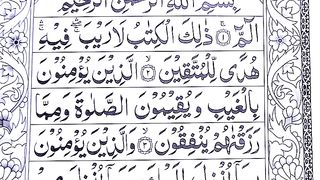 بِسْمِ اللّٰهِ الرَّحْمٰنِ الرَّحِيْمِ
الٓمّٓ ۚ﴿۱﴾ ذٰلِكَ الْكِتٰبُ لَا رَيْبَ ۛۚ فِيْهِ ۛۚ
هُدًى لِّلْمُتَّقِيْنَ ۙ﴿۲﴾ الَّذِيْنَ يُؤْمِنُوْنَ
بِالْغَيْبِ وَيُقِيْمُوْنَ الصَّلٰوةَ وَمِمَّا
رَزَقْنٰهُمْ يُنْفِقُوْنَ ۙ﴿۳﴾ وَالَّذِيْنَ يُؤْمِنُوْنَ